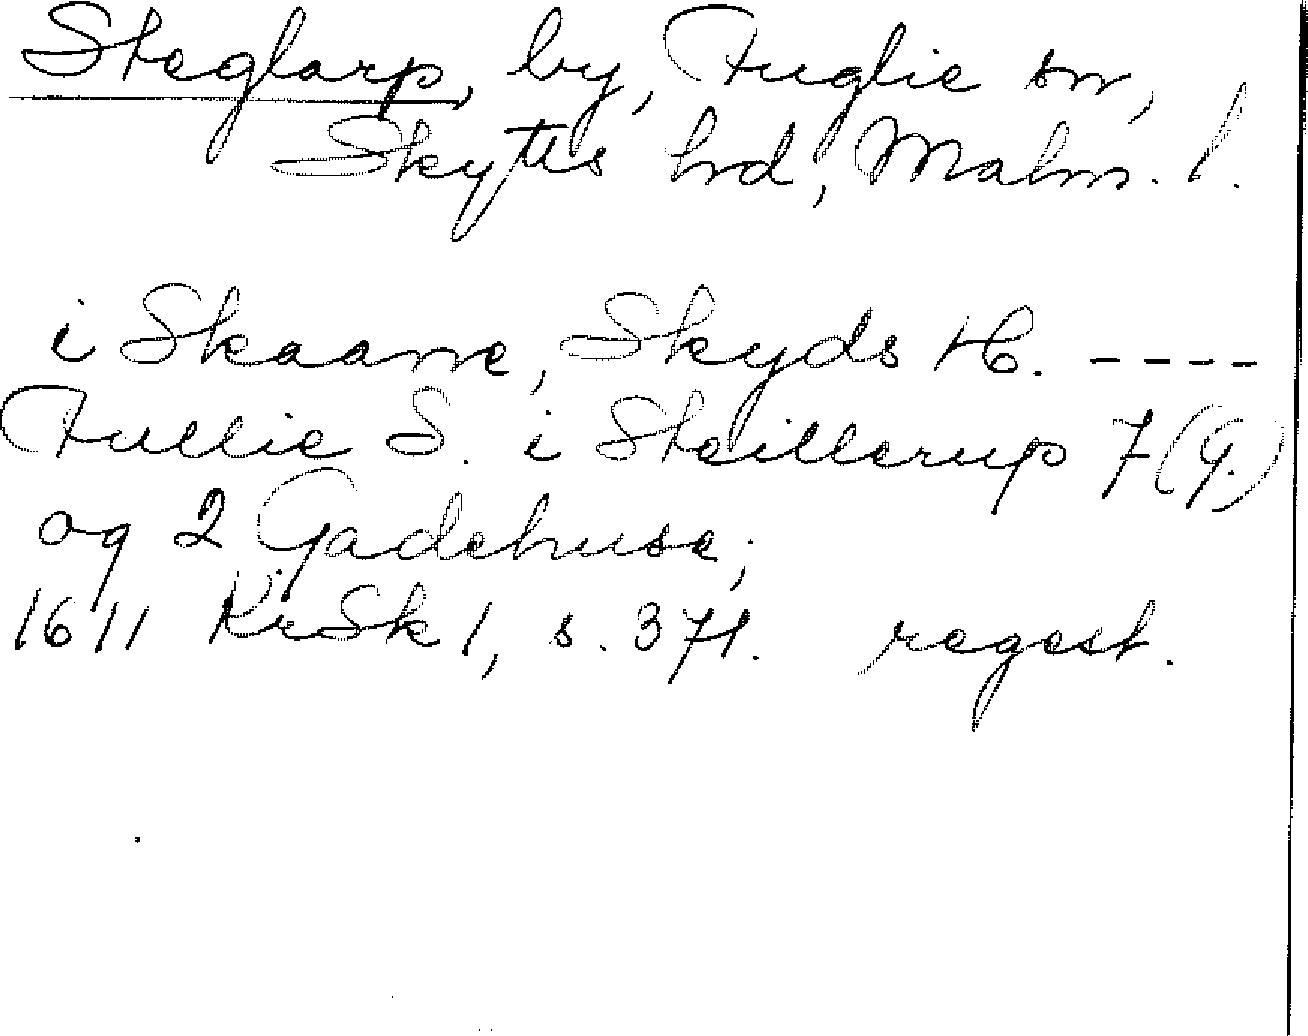 Steglarp, by, Fuglie sn,
Skytts hrd, Malm. l.
i Skaane, Skyds H. ----
Fullie S. i Steillerup 7 (G.)
og 2 Gadehuse;
1611 KrSk 1, s. 371. regest.